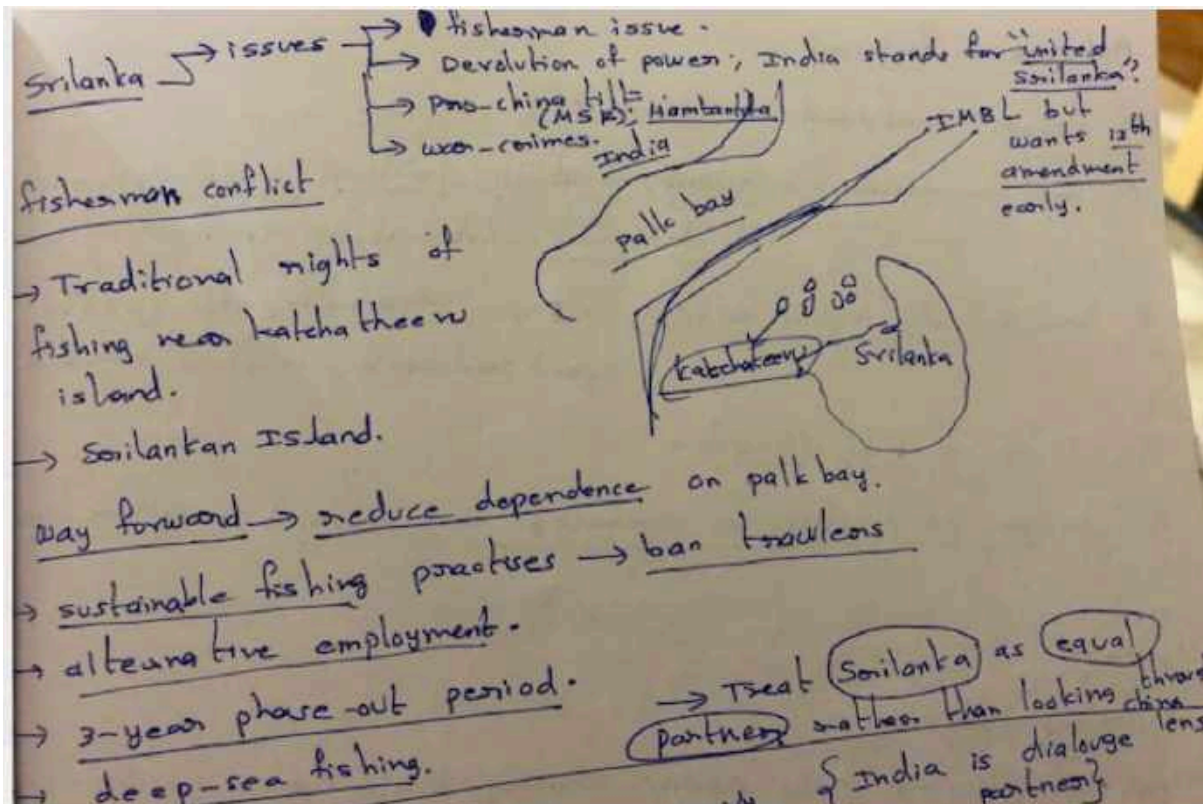 Srilanka → issues → fisherman issue.
→ Devolution of power; India stands for "united
Srilanka".
→ Pro-china tilt
(MSR); Hambantota
→ war-crimes.
IMBL but
wants 13th
amendment
early.
India
Palk bay
Katchateevu
Srilanka
fisherman conflict
→ Traditional rights of
fishing near katchatheevu
island.
→ Srilankan Island.
way forward → reduce dependence on palk bay.
→ sustainable fishing practises → ban trawlers
→ alternative employment.
→ 3-year phase-out period.
→ deep-sea fishing.
→ Treat Srilanka as equal
partner rather than looking through
china lens
{ India is dialouge
partner}